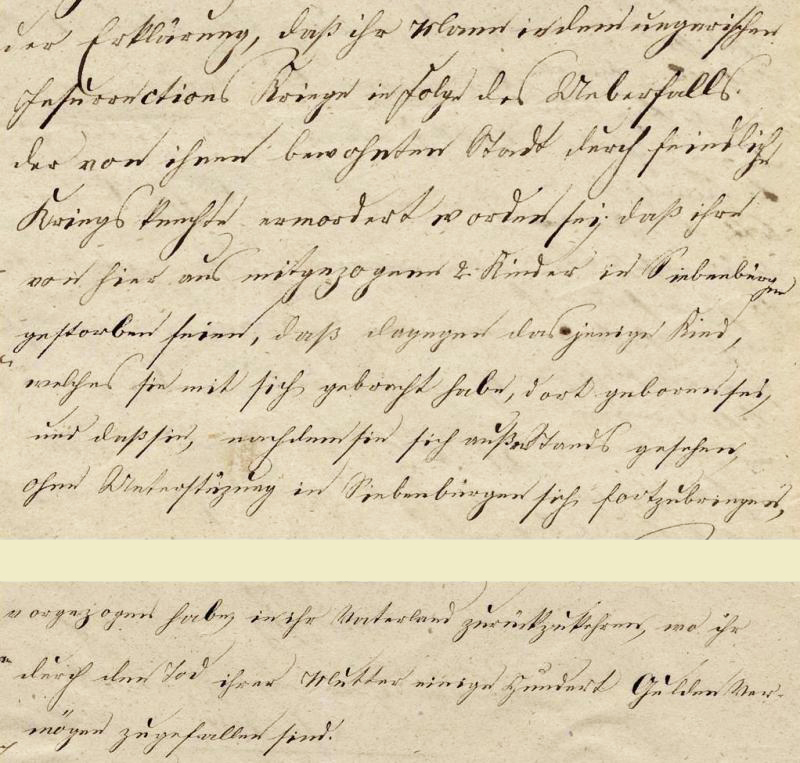 der Erklärung, daß ihr Mann in dem ungarischen
Insurrections Kriege in Folge des Ueberfalls
der von ihnen bewohnten Stadt durch feindliche
Kriegs Knechte ermordert worden sei, daß ihre
von hier aus mitgezogenen 2 Kinder in Siebenbürgen
gestorben seien, daß dagegen dasjenige Kind,
welches sie mit sich gebracht habe, dort geboren sei,
und daß sie, nachdem sie sich außer Stands gesehen,
ohne Unterstüzung in Siebenbürgen sich fortzubringen,
vorgezogen habe, in ihr Vaterland zurückzukehren, wo ihr
durch den Tod ihrer Mutter einige Hundert Gulden Ver-
mögen zugefallen sind.